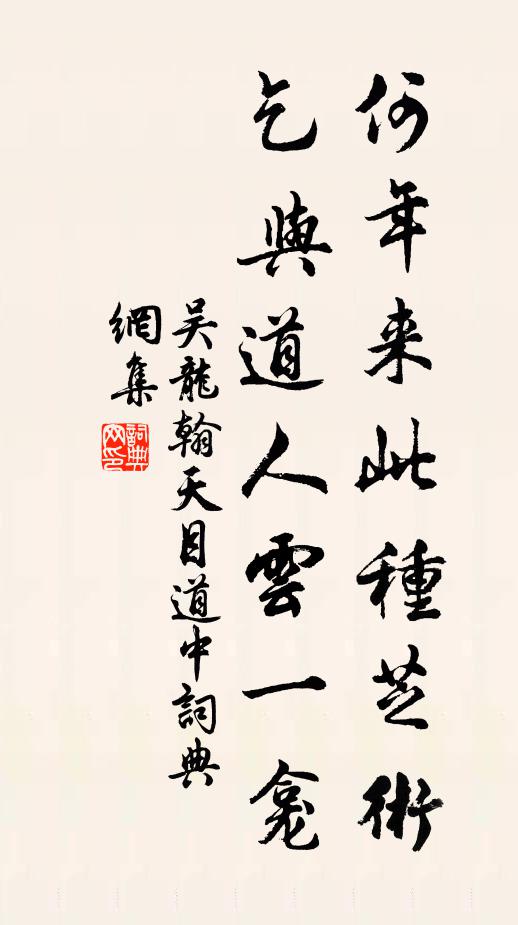 何年來此種芝術
乞與道人雲一龕
吴龍翰天目道中詞典
網集
詞典網印